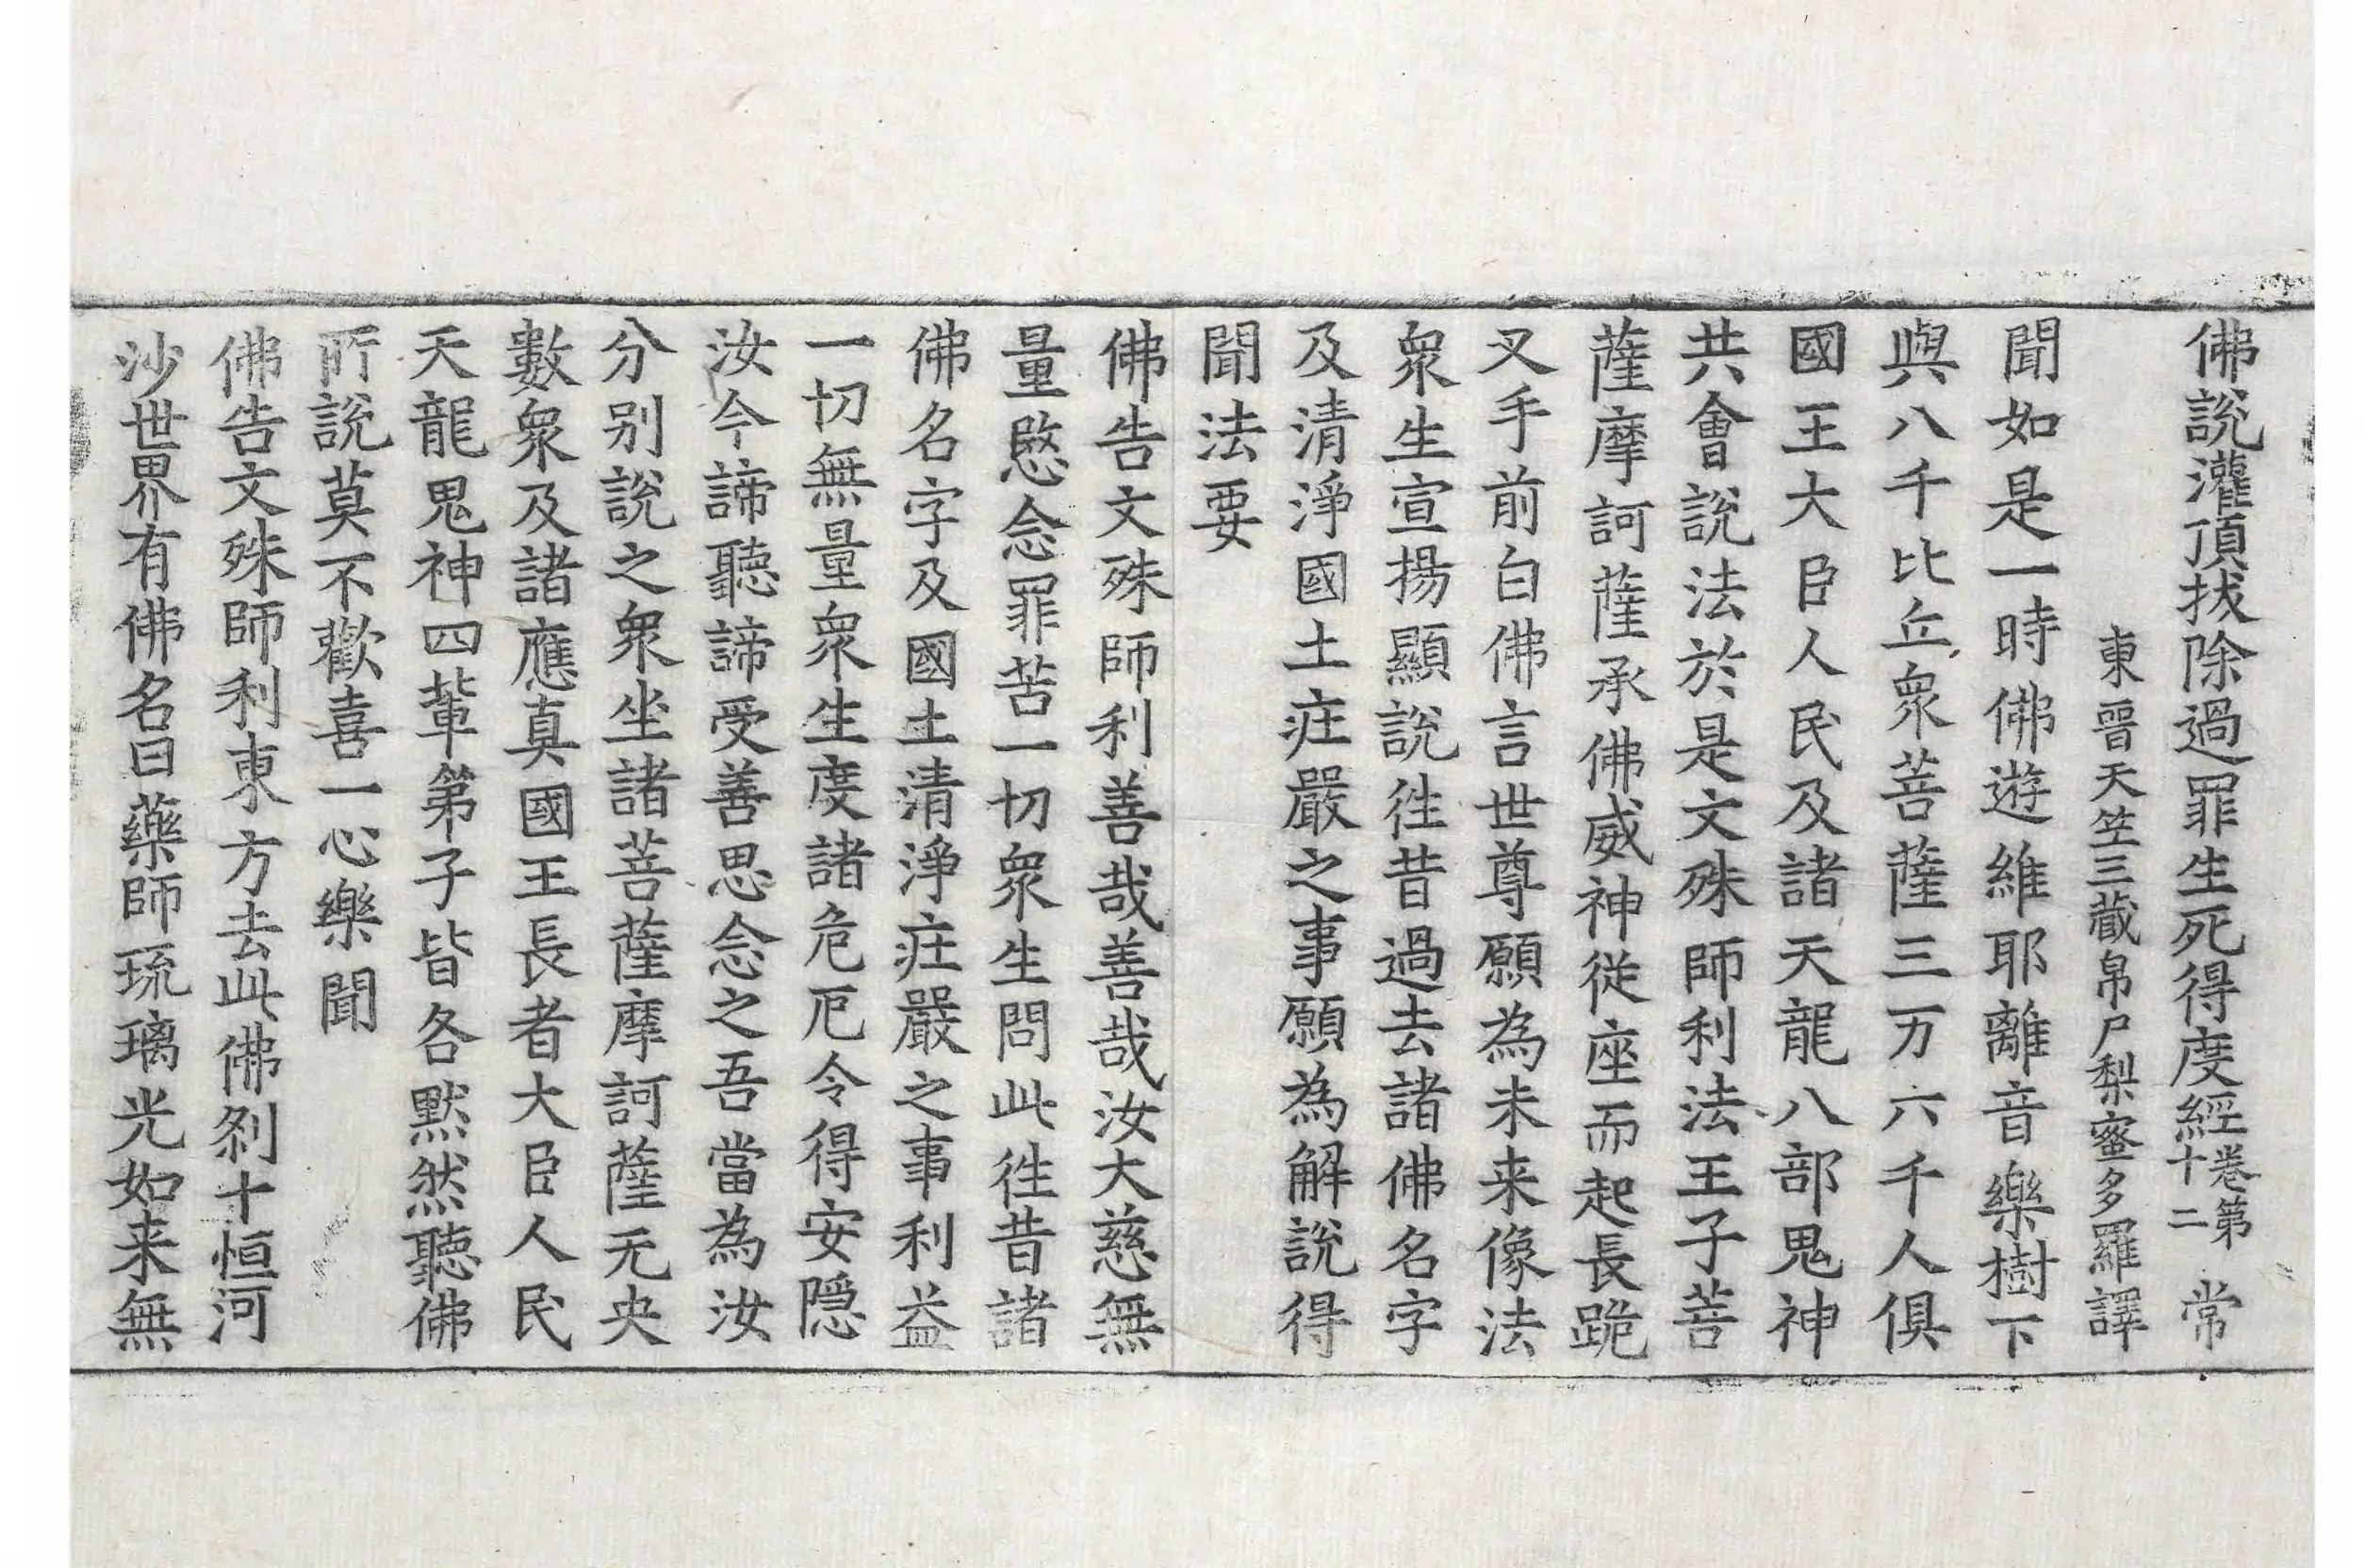 佛說灌頂拔除過罪生死得度經卷第十二 常
東晉天竺三藏帛尸梨蜜多羅譯
聞如是一時佛遊維耶離音樂樹下
與八千比丘衆菩薩三万六千人俱
國王大臣人民及諸天龍八部鬼神
共會說法於是文殊師利法王子菩
薩摩訶薩承佛威神從座而起長跪
叉手前白佛言世尊願為未来像法
衆生宣揚顯說往昔過去諸佛名字
及清淨國土莊嚴之事願為解說得
聞法要
佛告文殊師利善哉善哉汝大慈無
量愍念罪苦一切衆生問此往昔諸
佛名字及國土清淨莊嚴之事利益
一切無量衆生度諸危厄令得安隱
汝今諦聽諦受善思念之吾當為汝
分别說之衆坐諸菩薩摩訶薩无央
數衆及諸應真國王長者大臣人民
天龍鬼神四輩弟子皆各默然聽佛
所說莫不歡喜一心樂聞
佛告文殊師利東方去此佛刹十恒河
沙世界有佛名曰藥師琉璃光如来無